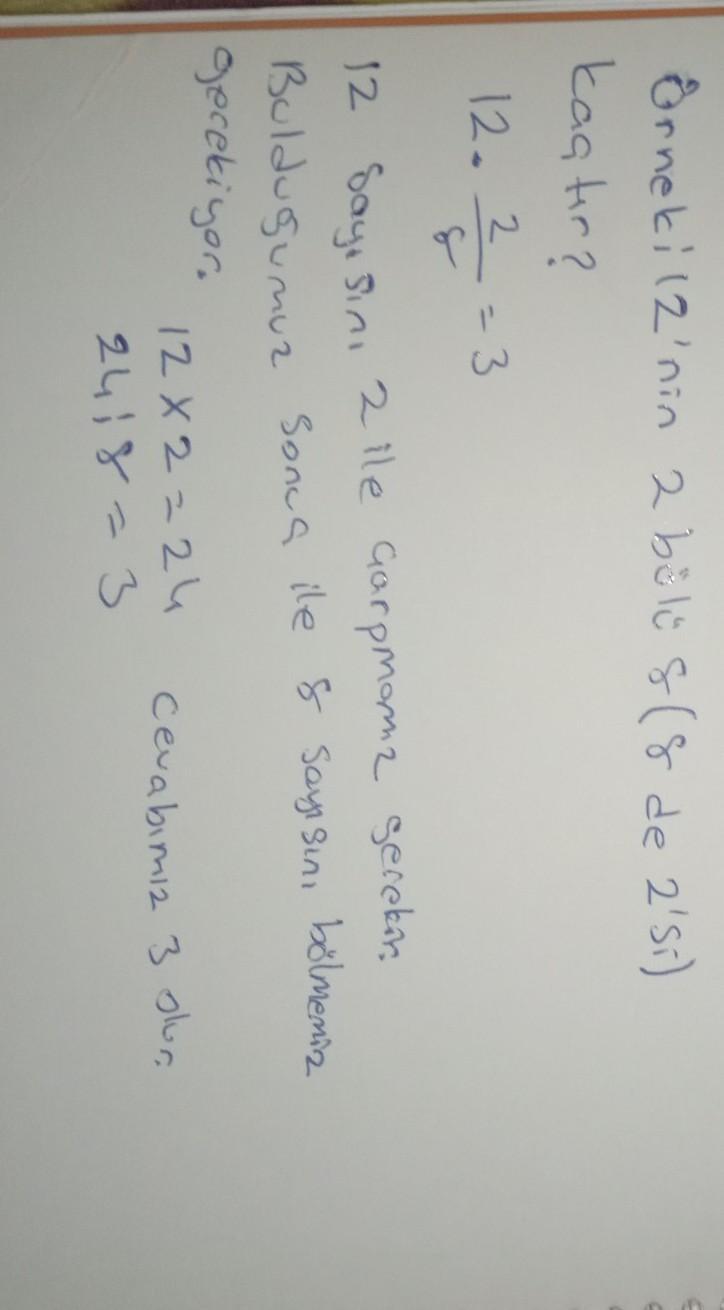 Örnek: 12'nin 2 bölü 8 (8 de 2'si)
kaçtır?
12 . 2/8 = 3
12 sayısını 2 ile çarpmamız gerekir.
Bulduğumuz sonuç ile 8 sayısını bölmemiz
gerekiyor.
12 x 2 = 24 cevabımız 3 olur.
24 : 8 = 3